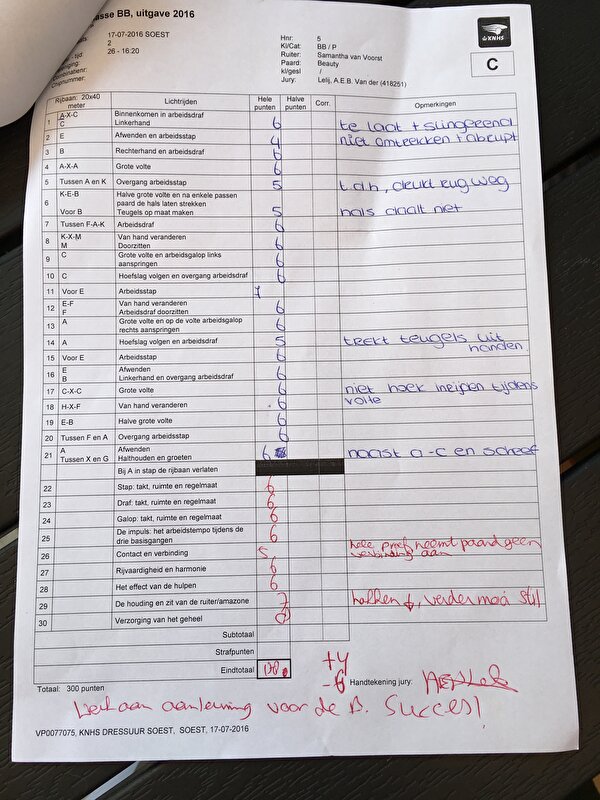 asse BB, uitgave 2016
17-07-2016 SOEST
2
26 - 16:20
Hnr: 5
Kl/Cat: BB / P
Ruiter: Samantha van Voorst
Paard: Beauty
kl/gesl /
Jury: Lelij, A.E.B. Van der (418251)
KNHS
C
Rijbaan: 20x40 meter Lichtrijden Hele punten Halve punten Corr. Opmerkingen
1 A-X-C Binnenkomen in arbeidsdraf
C Linkerhand 6 te laat + slingerend
2 E Afwenden en arbeidsstap 4 niet omtrekken + abrupt
3 B Rechterhand en arbeidsdraf 6
4 A-X-A Grote volte 6
5 Tussen A en K Overgang arbeidsstap 5 t.d.h, drukt rug weg
6 K-E-B Halve grote volte en na enkele passen
paard de hals laten strekken
Voor B Teugels op maat maken 5 hals daalt niet
7 Tussen F-A-K Arbeidsdraf 6
8 K-X-M Van hand veranderen
M Doorzitten 6
9 C Grote volte en arbeidsgalop links
aanspringen 6
10 C Hoefslag volgen en overgang arbeidsdraf 6
11 Voor E Arbeidsstap 7
12 E-F Van hand veranderen
F Arbeidsdraf doorzitten 6
13 A Grote volte en op de volte arbeidsgalop
rechts aanspringen 6
14 A Hoefslag volgen en arbeidsdraf 5 trekt teugels uit
handen
15 Voor E Arbeidsstap 6
16 E Afwenden
B Linkerhand en overgang arbeidsdraf 6
17 C-X-C Grote volte 6 niet hoek inrijden tijdens
volte
18 H-X-F Van hand veranderen 6
19 E-B Halve grote volte 6
20 Tussen F en A Overgang arbeidsstap 6
21 A Afwenden
Tussen X en G Halthouden en groeten 6 naast a-c en scheef
Bij A in stap de rijbaan verlaten
22 Stap: takt, ruimte en regelmaat 6
23 Draf: takt, ruimte en regelmaat 6
24 Galop: takt, ruimte en regelmaat 6
25 De impuls: het arbeidstempo tijdens de
drie basisgangen 6
26 Contact en verbinding 5 hele proef neemt paard geen
verbinding aan
27 Rijvaardigheid en harmonie 6
28 Het effect van de hulpen 6
29 De houding en zit van de ruiter/amazone 7 hakken ↓, verder mooi stil
30 Verzorging van het geheel
Subtotaal
Strafpunten
Eindtotaal +4
-6 Handtekening jury:
Totaal: 300 punten
Werk aan aanleuning voor de B. Succes!
VP0077075, KNHS DRESSUUR SOEST, SOEST, 17-07-2016